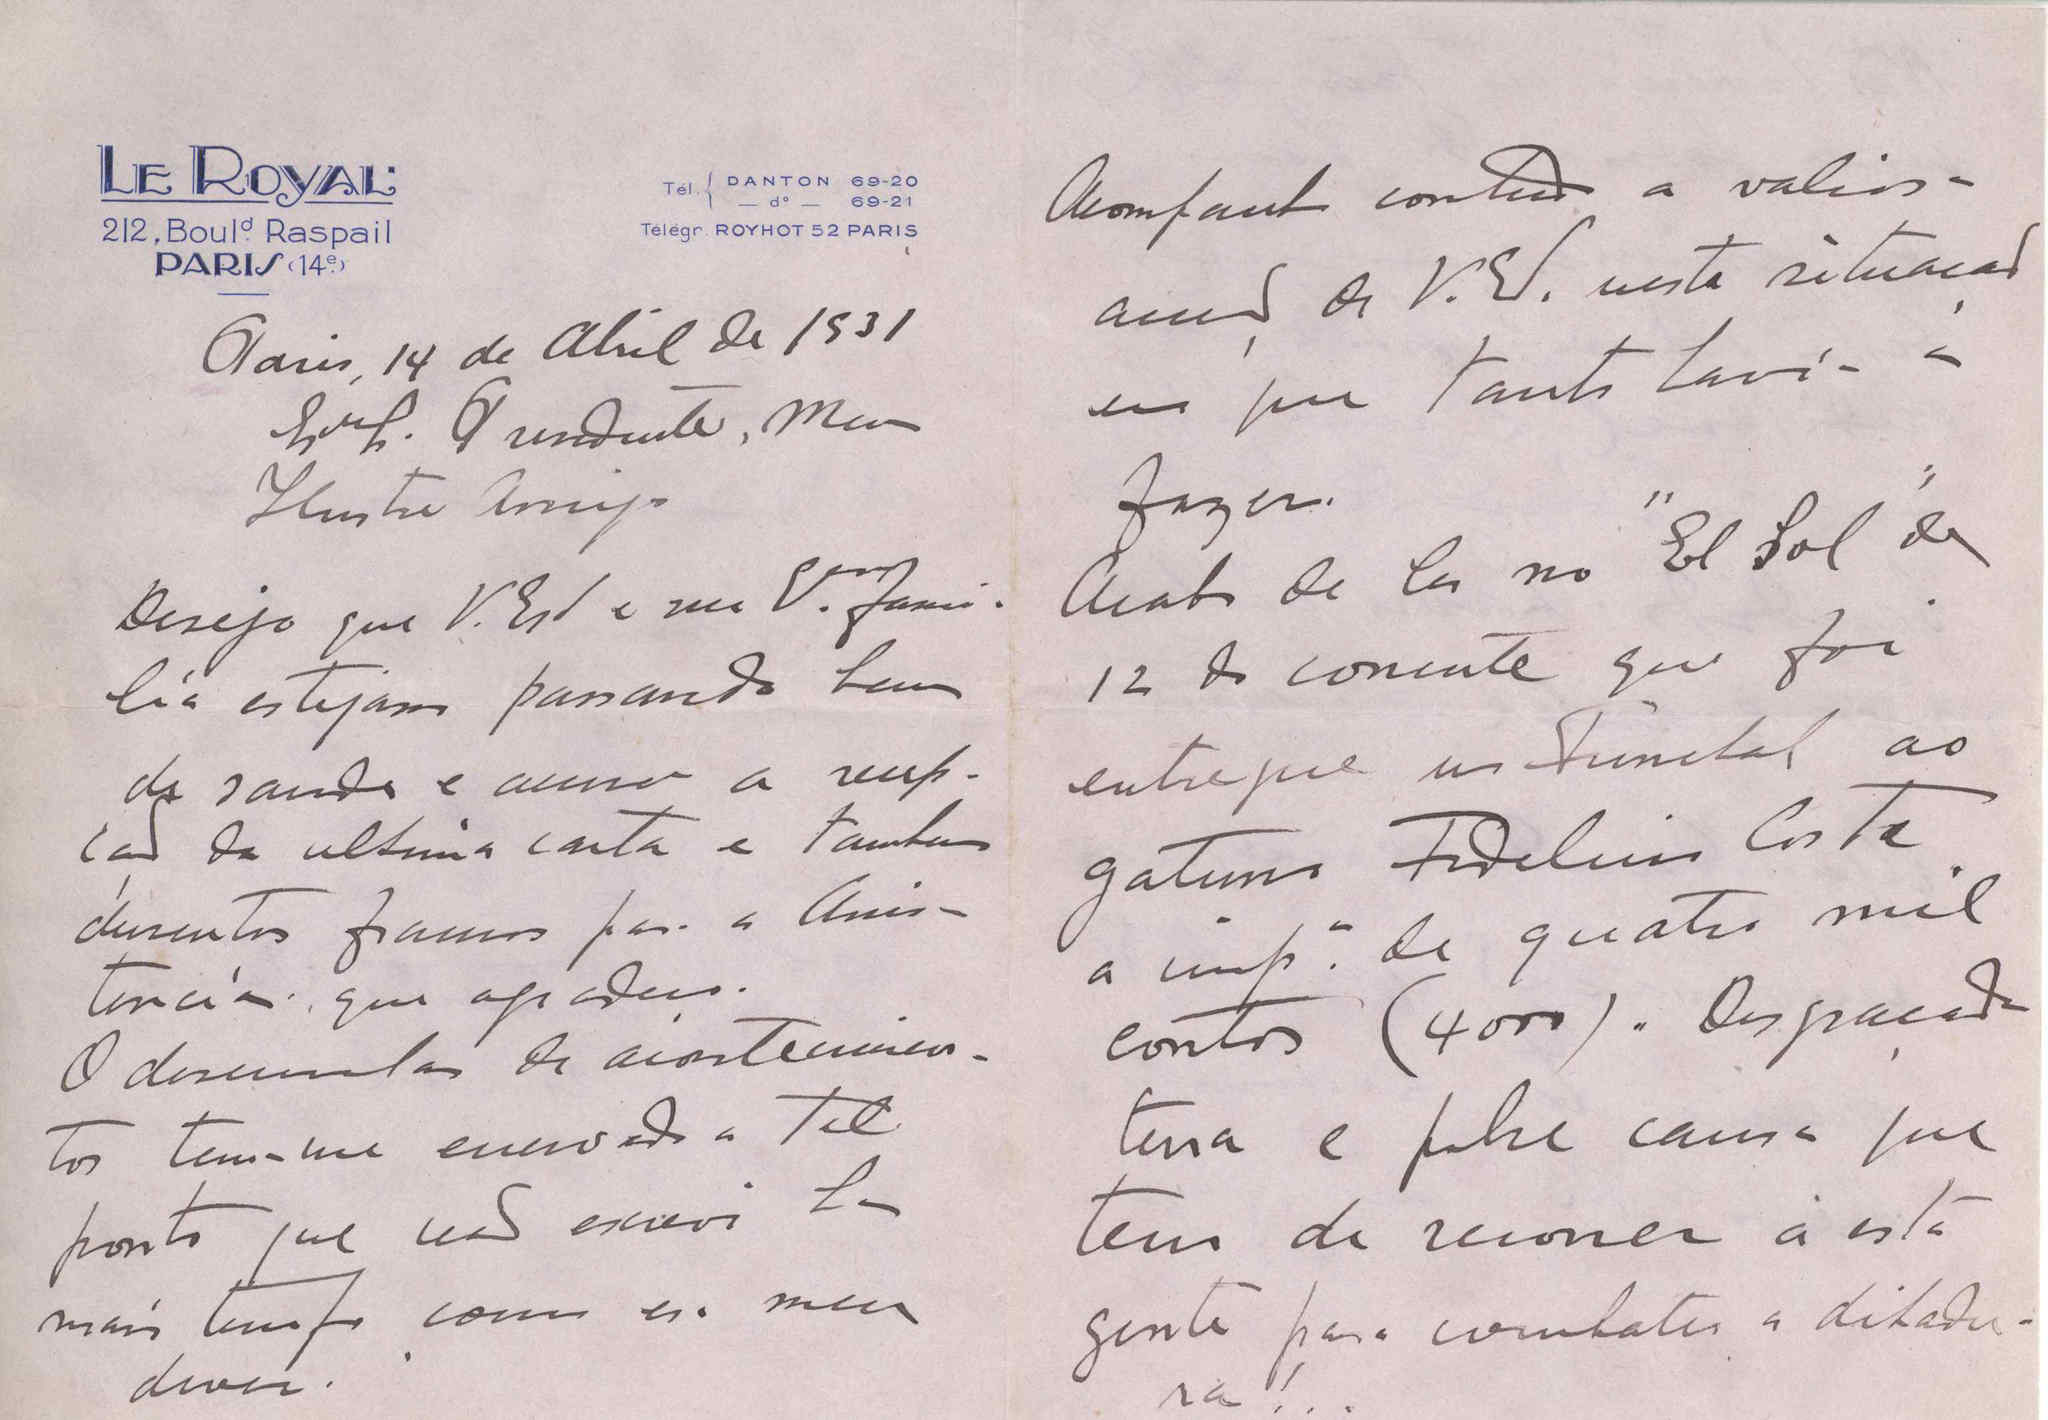 LE ROYAL
212, Bould. Raspail
PARIS (14e)
Tél. DANTON 69-20
— do — 69-21
Télégr. ROYHOT 52 PARIS
Paris, 14 de Abril de 1931
Presidente, Meu
Ilustre Amigo
Desejo que V. Exª e sua Exma fami-
lia estejam passando bem
de saude e acuso a recep-
ção da ultima carta e tambem
duzentos francos para a Assis-
tencia que agradeço.
O desenrolar de acontecimen-
tos tem-me enervado a tal
ponto que não escrevi ha
mais tempo como era meu
dever.
Acompanho contudo a valiosa
acção de V. Exª nesta situação
em que tanto havia a
fazer.
Acabo de ler no "El Sol" de
12 do corrente que foi
entregue no Funchal ao
gatuno Fidelino Costa
a impª de quatro mil
contos (4000). Desgraçada
terra e pobre causa que
tem de recorrer a esta
gente para combater a ditadu-
ra!...